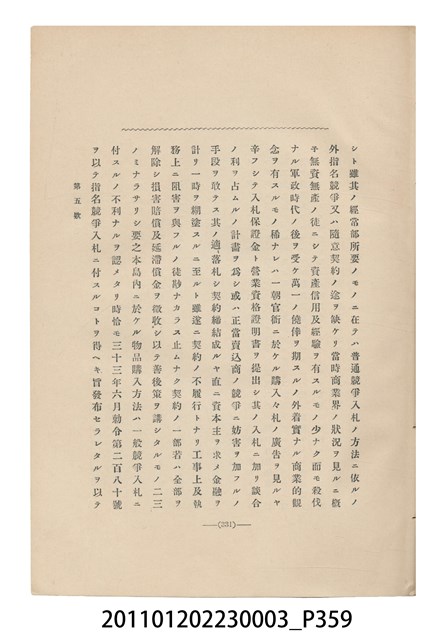 シト雖其ノ經常部所要ノモノニ在テハ普通競爭入札ノ方法ニ依ルノ
外指名競爭又ハ隨意契約ノ途ヲ缺ケリ當時商業界ノ狀況ヲ見ルニ概
モ無資無產ノ徒ニシテ資產信用及經驗ヲ有スルモノ少ナク而モ殺伐
ナル軍政時代ノ後ヲ受ケ萬一ノ僥倖ヲ期スルノ外着實ナル商業的觀
念ヲ有スルモノ稀ナレハ一朝官衙ニ於ケル購入々札ノ廣告ヲ見ルヤ
辛フシテ入札保證金ト營業資格證明書ヲ提出シ其ノ入札ニ加リ談合
ノ利ヲ占ムルノ計畫ヲ爲シ或ハ正當賣込商ノ競爭ニ妨害ヲ加フルノ
手段ヲ敢テス其ノ適落札シ契約締結成ルヤ直ニ資本主ヲ求メ金融ヲ
計リ一時ヲ糊塗スルニ至ルト雖遂ニ契約ノ不履行トナリ工事上及執
務上ニ阻害ヲ與フルノ徒尠ナカラス止ムナク契約ノ一部若ハ全部ヲ
解除シ損害賠償及延滯償金ヲ徵收シ以テ善後策ヲ講シタルモノ二三
ノミナラサリシ要之本島內ニ於ケル物品購入方法ハ一般競爭入札ニ
付スルノ不利ナルヲ認メタリ時恰モ三十三年六月勅令第二百八十號
ヲ以テ指名競爭入札ニ付スルコトヲ得ヘキ旨發布セラレタルヲ以テ
第五歌
(331)
201101202230003_P359